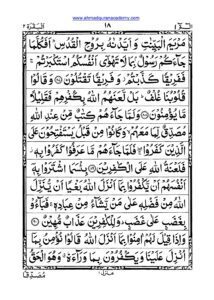 www.ahmadiquranacademy.com
البقرة ٢
١٨
الٓمّٓ ١
مَرْيَمَ الْبَيِّنٰتِ وَاَيَّدْنٰهُ بِرُوْحِ الْقُدُسِ ؕ اَفَكُلَّمَا
جَآءَكُمْ رَسُوْلٌۢ بِمَا لَا تَهْوٰۤى اَنْفُسُكُمُ اسْتَكْبَرْتُمْ ۚ
فَفَرِيْقًا كَذَّبْتُمْ ۫ وَفَرِيْقًا تَقْتُلُوْنَ ۝ وَقَالُوْا
قُلُوْبُنَا غُلْفٌ ؕ بَلْ لَّعَنَهُمُ اللّٰهُ بِكُفْرِهِمْ فَقَلِيْلًا
مَّا يُؤْمِنُوْنَ ۝ وَلَمَّا جَآءَهُمْ كِتٰبٌ مِّنْ عِنْدِ اللّٰهِ
مُصَدِّقٌ لِّمَا مَعَهُمْ ۙ وَكَانُوْا مِنْ قَبْلُ يَسْتَفْتِحُوْنَ عَلَى
الَّذِيْنَ كَفَرُوْا ۚ فَلَمَّا جَآءَهُمْ مَّا عَرَفُوْا كَفَرُوْا بِهٖ ۫
فَلَعْنَةُ اللّٰهِ عَلَى الْكٰفِرِيْنَ ۝ بِئْسَمَا اشْتَرَوْا بِهٖۤ
اَنْفُسَهُمْ اَنْ يَّكْفُرُوْا بِمَاۤ اَنْزَلَ اللّٰهُ بَغْيًا اَنْ يُّنَزِّلَ
اللّٰهُ مِنْ فَضْلِهٖ عَلٰى مَنْ يَّشَآءُ مِنْ عِبَادِهٖ ۚ فَبَآءُوْ
بِغَضَبٍ عَلٰى غَضَبٍ ؕ وَلِلْكٰفِرِيْنَ عَذَابٌ مُّهِيْنٌ ۝
وَاِذَا قِيْلَ لَهُمْ اٰمِنُوْا بِمَاۤ اَنْزَلَ اللّٰهُ قَالُوْا نُؤْمِنُ بِمَاۤ
اُنْزِلَ عَلَيْنَا وَيَكْفُرُوْنَ بِمَا وَرَآءَهٗ ۗ وَهُوَ الْحَقُّ
مُصَدِّقًا
منزل ١